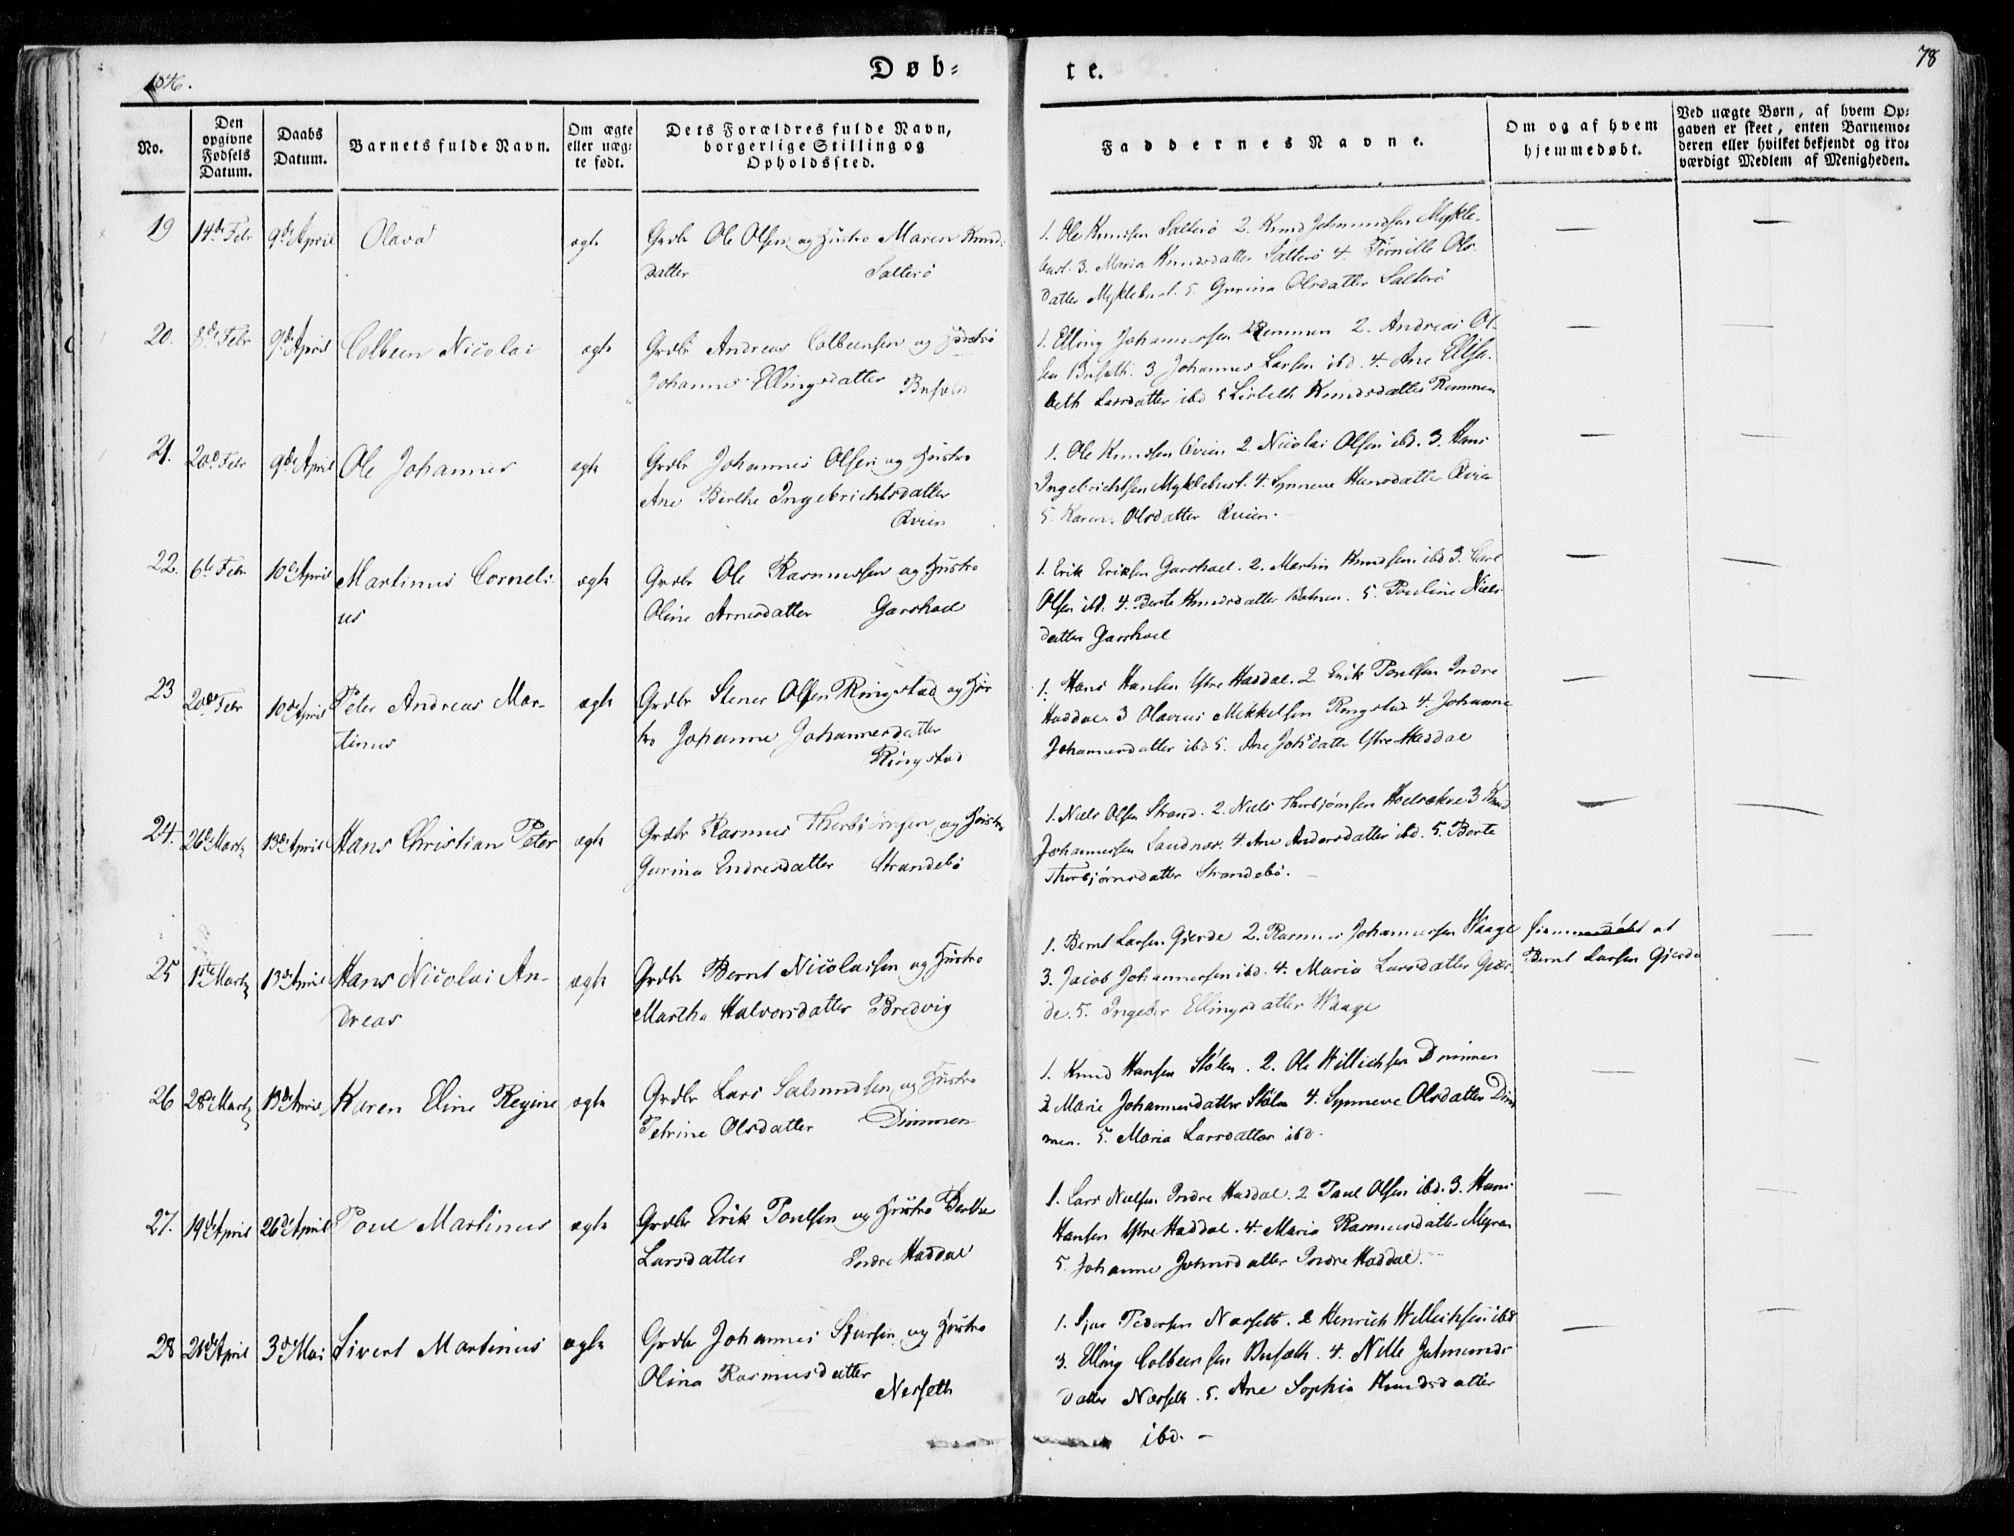 1846.
Døb-
te.
78
No.
Den opgivne Fødsels Datum.
Daabs Datum.
Barnets fulde Navn.
Om ægte eller uæg-te født.
Dets Forældres fulde Navn, borgerlige Stilling og Opholdssted.
Faddernes Navne.
Om og af hvem hjemmedøbt.
Ved uægte Børn, af hvem Op-gaven er skeet, enten Barnemo-deren eller hvilket bekjendt og tro-værdigt Medlem af Menigheden.
19 14de Febr 9de April Olava ægte Grdbr Ole Olsen og Hustro Maren Knud-
datter Salterö
1. Ole Knudsen Salterö 2. Knud Johannesen Mykle-
bust. 3. Maria Knudsdatter Salterö 4. Pernille Ols-
datter Myklebust. 5. Gurina Olsdatter Salterö
— —
20. 8de Febr 9de April Colbeen Nicolai ægte Grdbr Andreas Colbeensen og Hustro
Johanne Ellingsdatter Busæth
1. Elling Johannesen Remmen 2. Andreas Ol-
sen Busæth. 3 Johannes Larsen ibd. 4. Ane Elisa-
beth Larsdatter ibd 5 Lisbeth Knudsdatter Remmen
— —
21. 20de Febr 9de April Ole Johannes ægte Grdbr Johannes Olsen og Hustro
Ane Birthe Ingebrichtsdatter
Øvien
1. Ole Knudsen Øvien 2. Nicolai Olsen ibd. 3. Hans
Ingebrichtsen Myklebust. 4. Synneve Hansdatter Øvien
5. Karen Olsdatter Øvien.
— —
22. 6te Febr 10de April Martinus Corneli-
us ægte Grdbr Ole Rasmussen og Hustro
Oline Arnesdatter Garshoel
1. Erik Eriksen Garshoel. 2. Martin Knudsen ibd 3. Carl
Olsen ibd. 4. Berte Knudsdatter Botnen. 5. Pauline Niels-
datter Garshoel
— —
23 20de Febr 10de April Peter Andreas Mar-
tinus ægte Grdbr Stener Olsen Ringstad og Hus-
tro Johanne Johannesdatter
Ringstad
1. Hans Hansen Ystre Haddal. 2 Erik Poulsen Indre
Haddal. 3 Olaus Mikkelsen Ringstad 4. Johanne
Johannesdatter ibd 5. Ane Johsdatter Ystre Haddal
— —
24. 26de Marts 13de April Hans Christian Peter ægte Grdbr Rasmus Thorbjörnsen og Hustro
Gurina Endresdatter Strandebö
1. Niels Olsen Strand. 2. Niels Thorbjörnsen Hoelsækre 3 Knud
Johannesen Landnæs. 4. Ane Andersdatter ibd. 5. Berte
Thorbjörnsdatter Strandebö.
— —
25 1ste Marts 13de April Hans Nicolai An-
dreas ægte Grdbr Bernt Nicolaisen og Hustro
Martha Halvorsdatter Bredvig
1. Bernt Larsen Gjerde 2. Rasmus Johannesen Waage
3. Jacob Johannesen ibd. 4. Maria Larsdatter Gjer-
de. 5. Ingebor Ellingsdatter Waage
hjemmedøbt af
Bernt Larsen Gjerde
—
26 28de Marts 13de April Karen Eline Regine ægte Grdbr Lars Salmundsen og Hustro
Petrine Olsdatter Dimmen
1. Knud Hansen Stölen. 2. Ole Willichsen Dimmen
3 Marie Johannesdatter Stölen 4. Synneve Olsdatter Dim
men. 5. Maria Larsdatter ibd.
— —
27. 19de April 26de April Poul Martinus ægte Grdbr Erik Poulsen og Hustro Berthe
Larsdatter Indre Haddal
1. Lars Nielsen Indre Haddal. 2 Paul Olsen ibd. 3. Hans
Hansen Ystre Haddal. 4. Maria Rasmusdatter Myren
5. Johanne Johnsdatter Indre Haddal.
— —
28 21de April 3de Mai Sivert Martinus ægte Grdbr Johannes Sjursen og Hustro
Olina Rasmusdatter
Næsseth
1. Sjur Pedersen Næsseth. 2 Henrich Willichsen ibd
3. Elling Colbeensen Busæth. 4. Nille Jetmunds-
datter Næsseth. 5. Ane Sophia Knudsdatter
ibd. —
— —